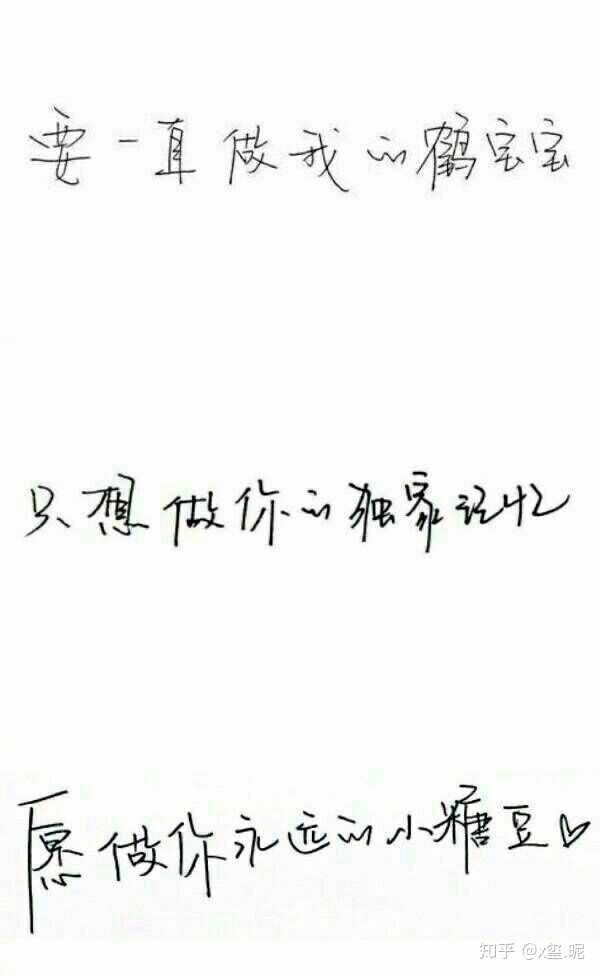 要一直做我的鹤宝宝
只想做你的独家记忆
愿做你永远的小糖豆♡
知乎 @x玺.昵